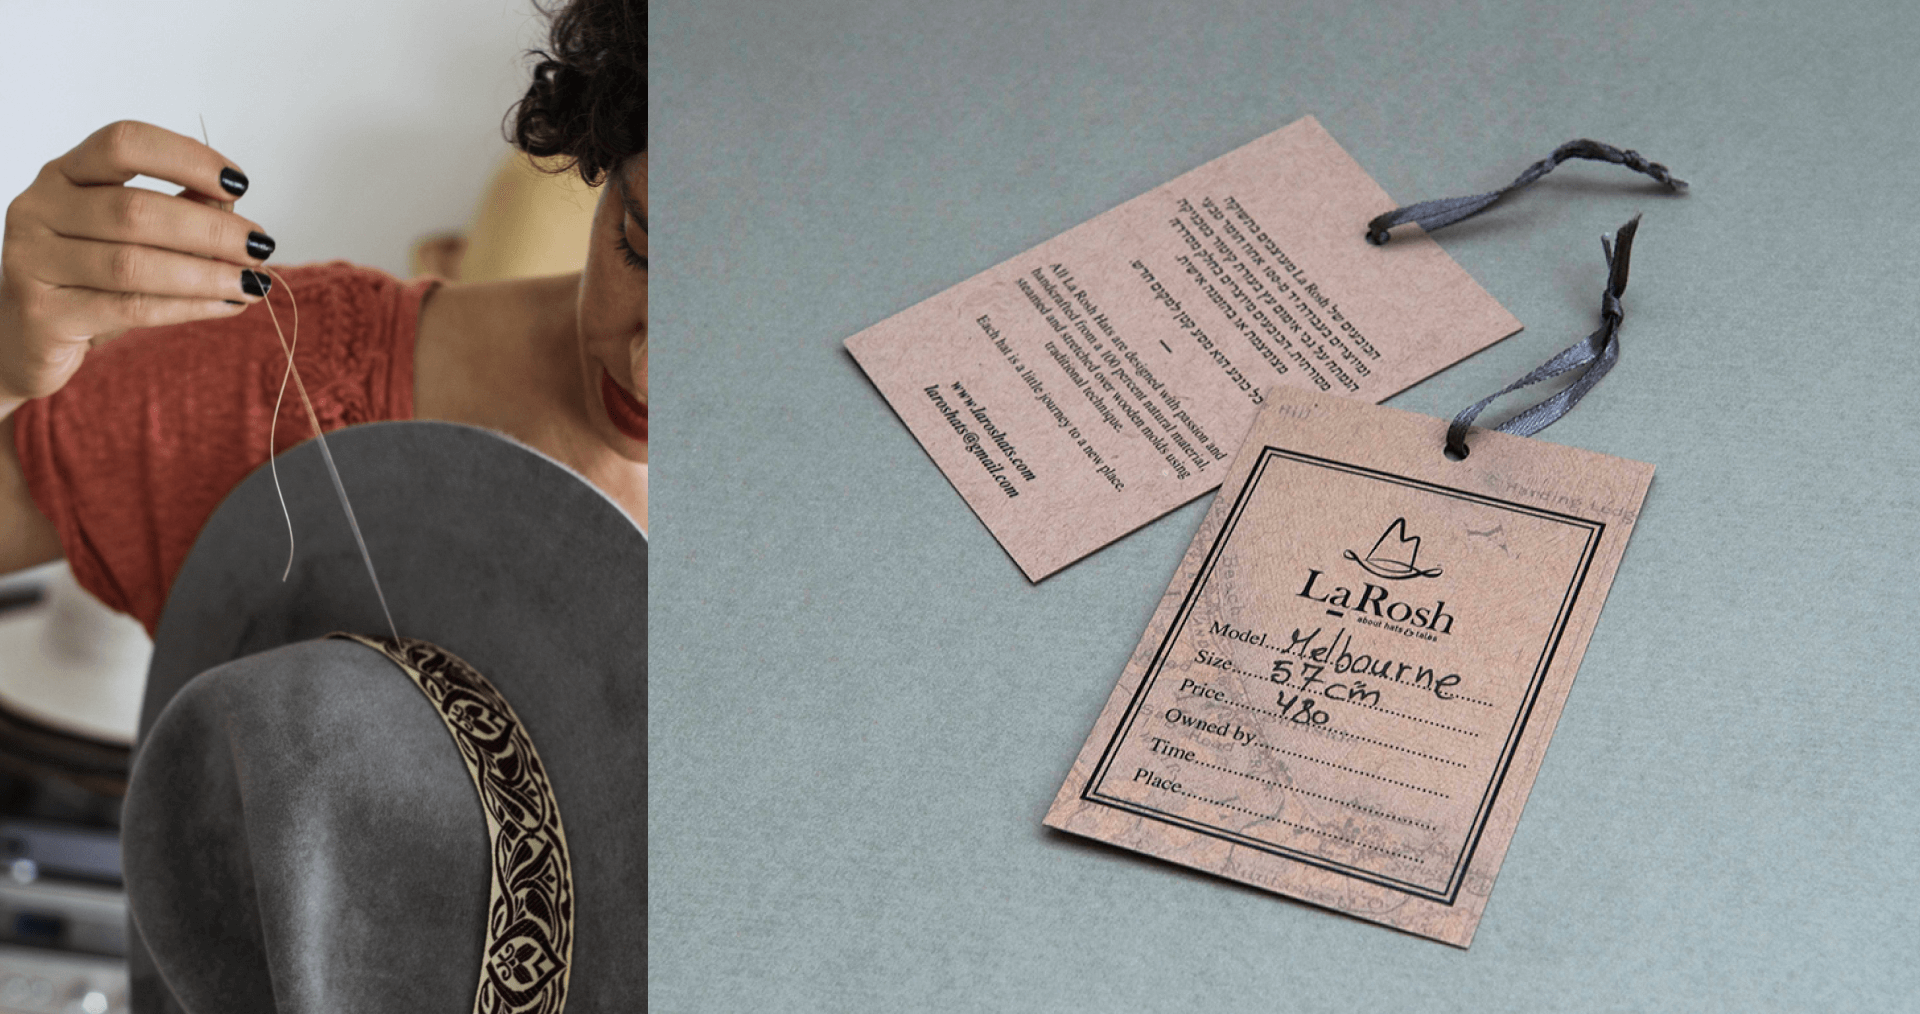 הכובעים של La Rosh מעוצבים בתשוקה
ומיוצרים בעבודת יד מ-100 אחוז חומר טבעי
הנמתח על גבי אימום עץ בעזרת קיטור בטכניקה
מסורתית. הכובעים מיוצרים כחלק מסדרה
מצומצמת או בהזמנה אישית.
כל כובע הוא מסע קטן למקום חדש.
–
All La Rosh Hats are designed with passion and
handcrafted from a 100 percent natural material,
steamed and stretched over wooden molds using
traditional technique.
Each hat is a little journey to a new place.
www.laroshats.com
laroshats@gmail.com
Harding Ledg
Beach
LaRosh
about hats & tales
Model...Melbourne
Size...57cm
Price...480
Owned by...
Time...
Place...